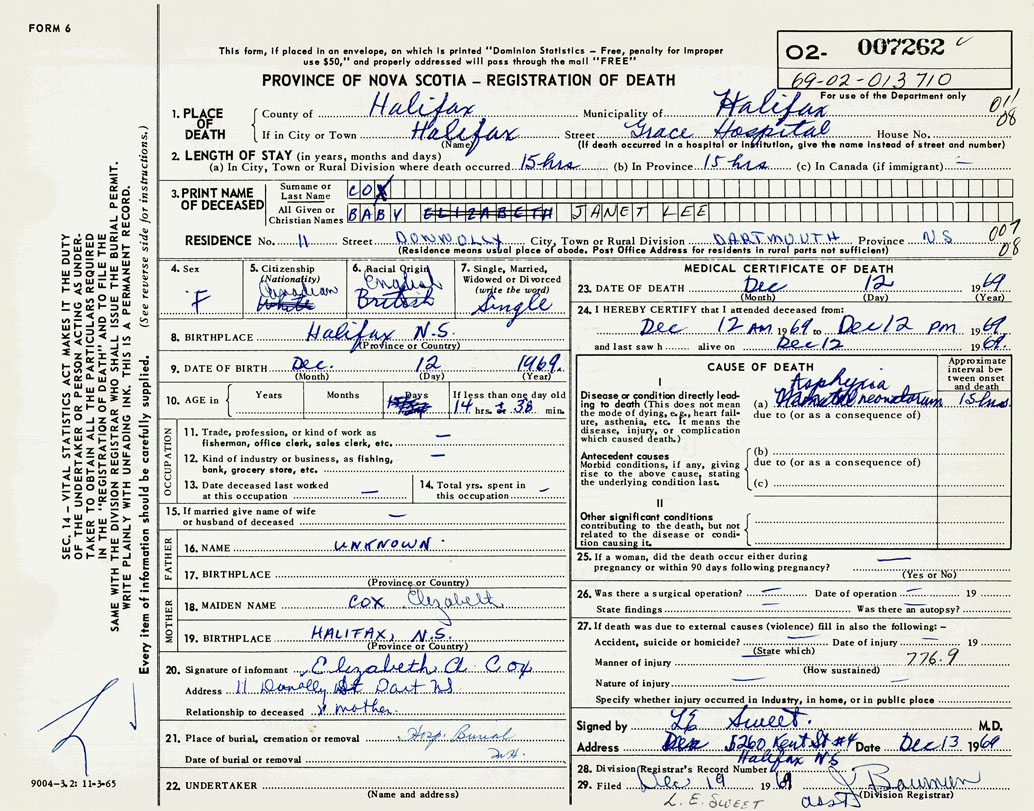 FORM 6
This form, if placed in an envelope, on which is printed "Dominion Statistics – Free, penalty for improper
use $50," and properly addressed will pass through the mail "FREE"
PROVINCE OF NOVA SCOTIA – REGISTRATION OF DEATH
O2- 007262
69-02-013710
For use of the Department only
011
08
1. PLACE OF DEATH
County of Halifax Municipality of Halifax
If in City or Town Halifax Street Grace Hospital House No.
(Name) (If death occurred in a hospital or institution, give the name instead of street and number)
2. LENGTH OF STAY (in years, months and days)
(a) In City, Town or Rural Division where death occurred 15 hrs (b) In Province 15 hrs (c) In Canada (if immigrant) —
3. PRINT NAME OF DECEASED
Surname or Last Name COX
All Given or Christian Names BABY ELIZABETH JANET LEE
RESIDENCE No. 11 Street DONNOLLY City, Town or Rural Division DARTMOUTH Province NS
007
08
(Residence means usual place of abode. Post Office Address for residents in rural parts not sufficient)
4. Sex
F
5. Citizenship
(Nationality)
Canadian
White
6. Racial Origin
English
British
7. Single, Married,
Widowed or Divorced
(write the word)
Single
8. BIRTHPLACE Halifax N.S.
(Province or Country)
9. DATE OF BIRTH Dec. 12 1969.
(Month) (Day) (Year)
10. AGE in Years Months Days
If less than one day old
14 hrs. 38 min.
OCCUPATION
11. Trade, profession, or kind of work as
fisherman, office clerk, sales clerk, etc. —
12. Kind of industry or business, as fishing,
bank, grocery store, etc. —
13. Date deceased last worked
at this occupation —
14. Total yrs. spent in
this occupation —
15. If married give name of wife
or husband of deceased —
FATHER
16. NAME UNKNOWN
17. BIRTHPLACE
(Province or Country)
MOTHER
18. MAIDEN NAME COX Elizabeth
19. BIRTHPLACE HALIFAX, N.S.
(Province or Country)
20. Signature of informant Elizabeth A. Cox
Address 11 Donolly St Dart NS
Relationship to deceased mother.
21. Place of burial, cremation or removal Hosp. Burial
Date of burial or removal
22. UNDERTAKER
(Name and address)
MEDICAL CERTIFICATE OF DEATH
23. DATE OF DEATH Dec 12 1969
(Month) (Day) (Year)
24. I HEREBY CERTIFY that I attended deceased from:
Dec 12 AM 1969 to Dec 12 PM 1969.
and last saw h alive on Dec 12 1969.
CAUSE OF DEATH
Approximate interval between onset and death
I
Disease or condition directly leading
to death (This does not mean
the mode of dying, e.g., heart failure,
asthenia, etc. It means the
disease, injury, or complication
which caused death.)
Asphyxia
(a) neonatorum 15 hrs
due to (or as a consequence of)
Antecedent causes
Morbid conditions, if any, giving
rise to the above cause, stating
the underlying condition last.
(b)
due to (or as a consequence of)
(c)
II
Other significant conditions
contributing to the death, but not
related to the disease or condition
causing it.
25. If a woman, did the death occur either during
pregnancy or within 90 days following pregnancy? —
(Yes or No)
26. Was there a surgical operation? — Date of operation — 19
State findings — Was there an autopsy? —
27. If death was due to external causes (violence) fill in also the following: –
Accident, suicide or homicide? — Date of injury — 19
(State which)
Manner of injury 776.9
(How sustained)
Nature of injury — —
Specify whether injury occurred in Industry, in home, or in public place
Signed by LE Sweet. M.D.
Address 5260 Kent St #4 Date Dec 13 1969
Halifax NS
28. Division Registrar's Record Number
29. Filed Dec 19 1969 J Bauman
(Division Registrar)
L. E. SWEET asst
SEC. 14 – VITAL STATISTICS ACT MAKES IT THE DUTY
OF THE UNDERTAKER OR PERSON ACTING AS UNDER-
TAKER TO OBTAIN ALL THE PARTICULARS REQUIRED
IN THE "REGISTRATION OF DEATH" AND TO FILE THE
SAME WITH THE DIVISION REGISTRAR WHO SHALL ISSUE THE BURIAL PERMIT.
WRITE PLAINLY WITH UNFADING INK. THIS IS A PERMANENT RECORD.
Every item of information should be carefully supplied. (See reverse side for instructions.)
9004–3.2: 11-3-65